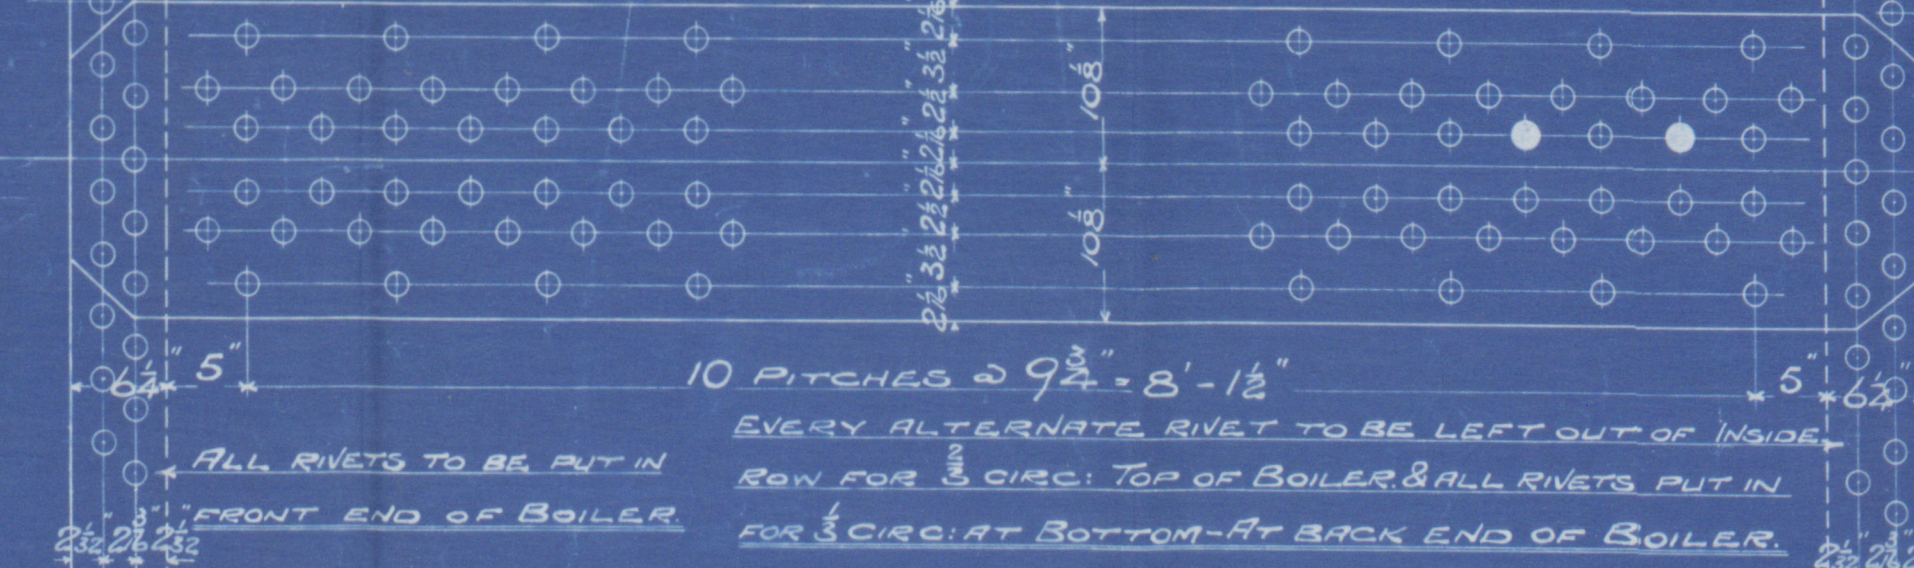 2 1/16" 3 1/2" 2 1/2" 2 1/16" 2 1/16" 2 1/2" 3 1/2" 2 1/16"
10 1/8"
10 1/8"
6 1/4" 5" 10 PITCHES @ 9 3/4" = 8' - 1 1/2" 5" 6 1/4"
ALL RIVETS TO BE PUT IN
FRONT END OF BOILER.
EVERY ALTERNATE RIVET TO BE LEFT OUT OF INSIDE
ROW FOR 2/3 CIRC: TOP OF BOILER. & ALL RIVETS PUT IN
FOR 1/3 CIRC: AT BOTTOM - AT BACK END OF BOILER.
2 1/32" 2 3/16" 2 1/32"
2 1/32" 2 3/16"